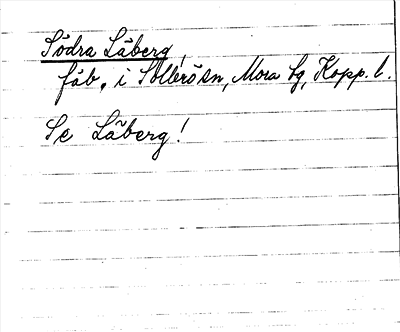 Södra Låberg,
fäb. i Sollerösn, Mora tg, Kopp. l.
Se Låberg!